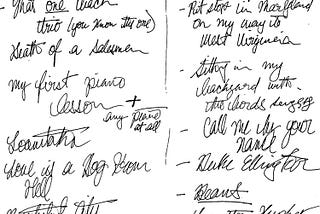 - That one Bach
trio (you know the one)
Death of a Salesman
my first piano
lesson +
any piano
at all
Love is a Dog From
Hell
- Pit stops in Maryland
on my way to
West Virginia
- Sitting in my
backyard with
the birds
- Call me by your
name
- Duke Ellington
- Beans